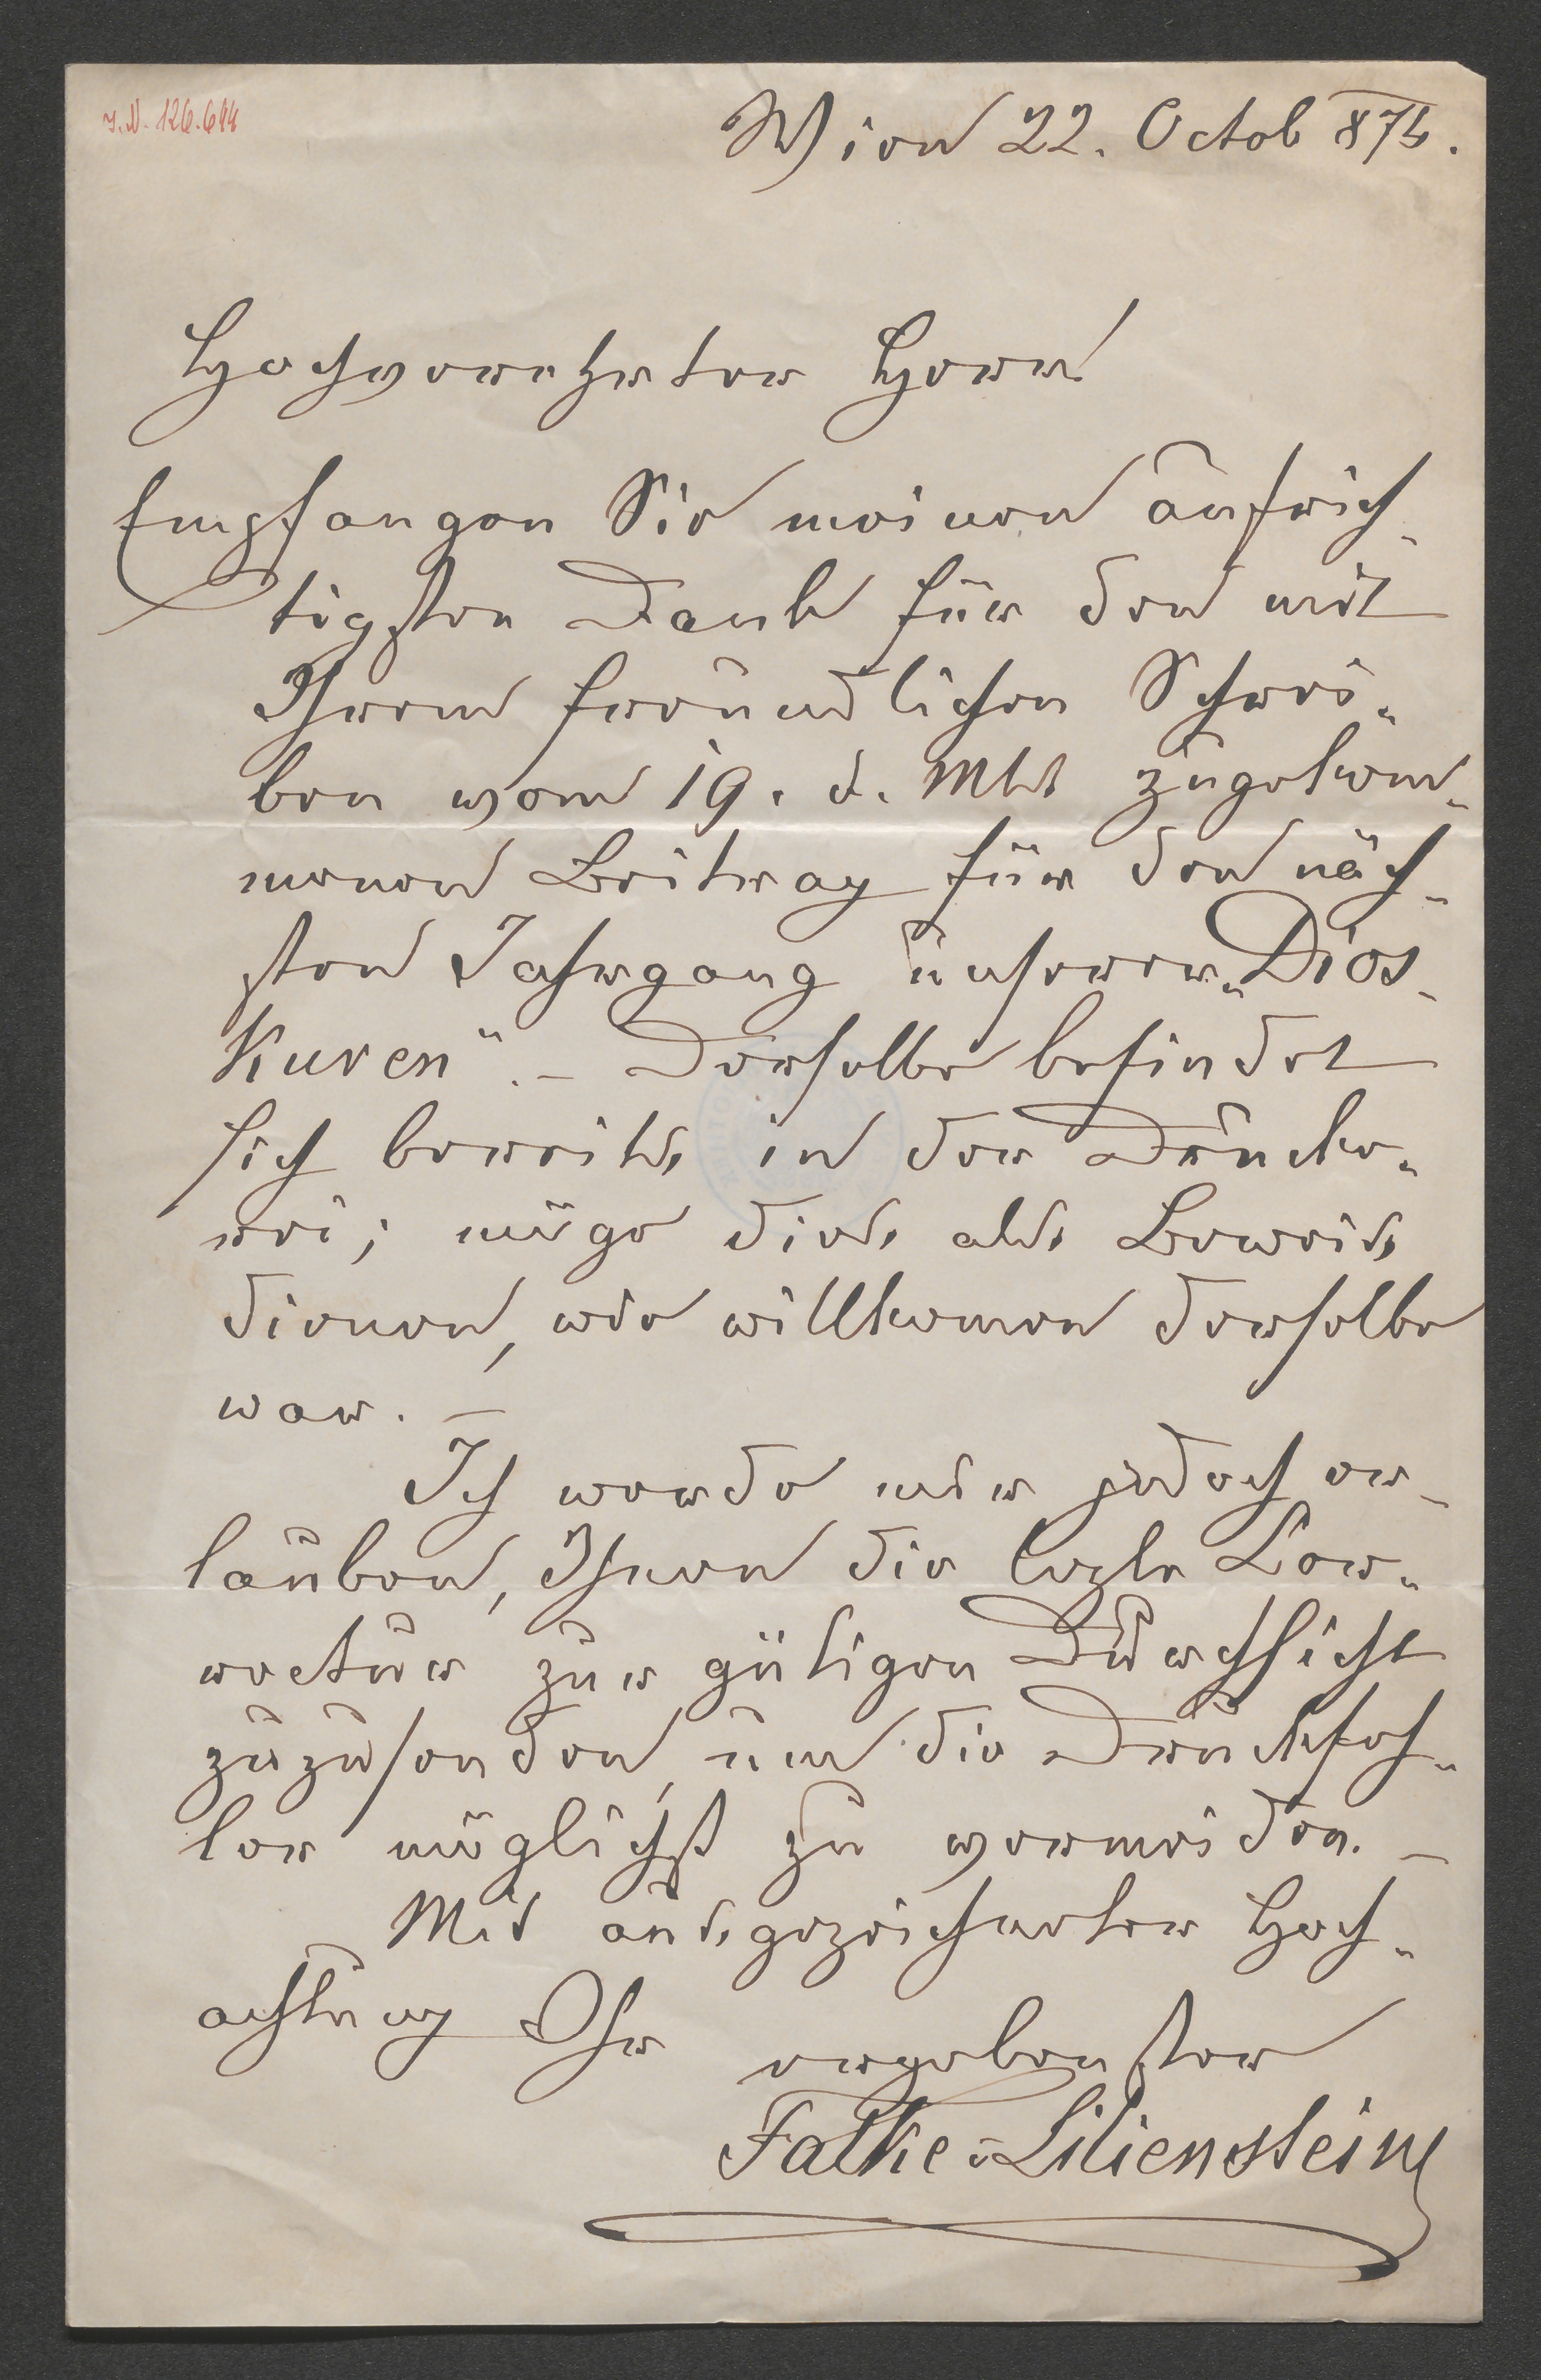 J.N. 126.644
Wien 22. Octob 875.
Hochverehrter Herr!
Empfangen Sie meinen aufrich-
tigsten Dank für den mit
Ihrem freundlichen Schrei-
ben vom 19. d. Mts zugekom-
menen Beitrag für den näch-
sten Jahrgang unserer „Dios-
kuren“. – Derselbe befindet
sich bereits in der Drucke-
rei; möge dies als Beweis
dienen, wie willkomen derselbe
war. –
Ich werde mir jedoch er-
lauben, Ihnen die letzte Cor-
rectur zur gütigen Durchsicht
zuzusenden, um die Druckfeh-
ler möglichst zu vermeiden. –
Mit ausgezeichneter Hoch-
achtung Ihr
ergebenster
Falke-Lilienstein